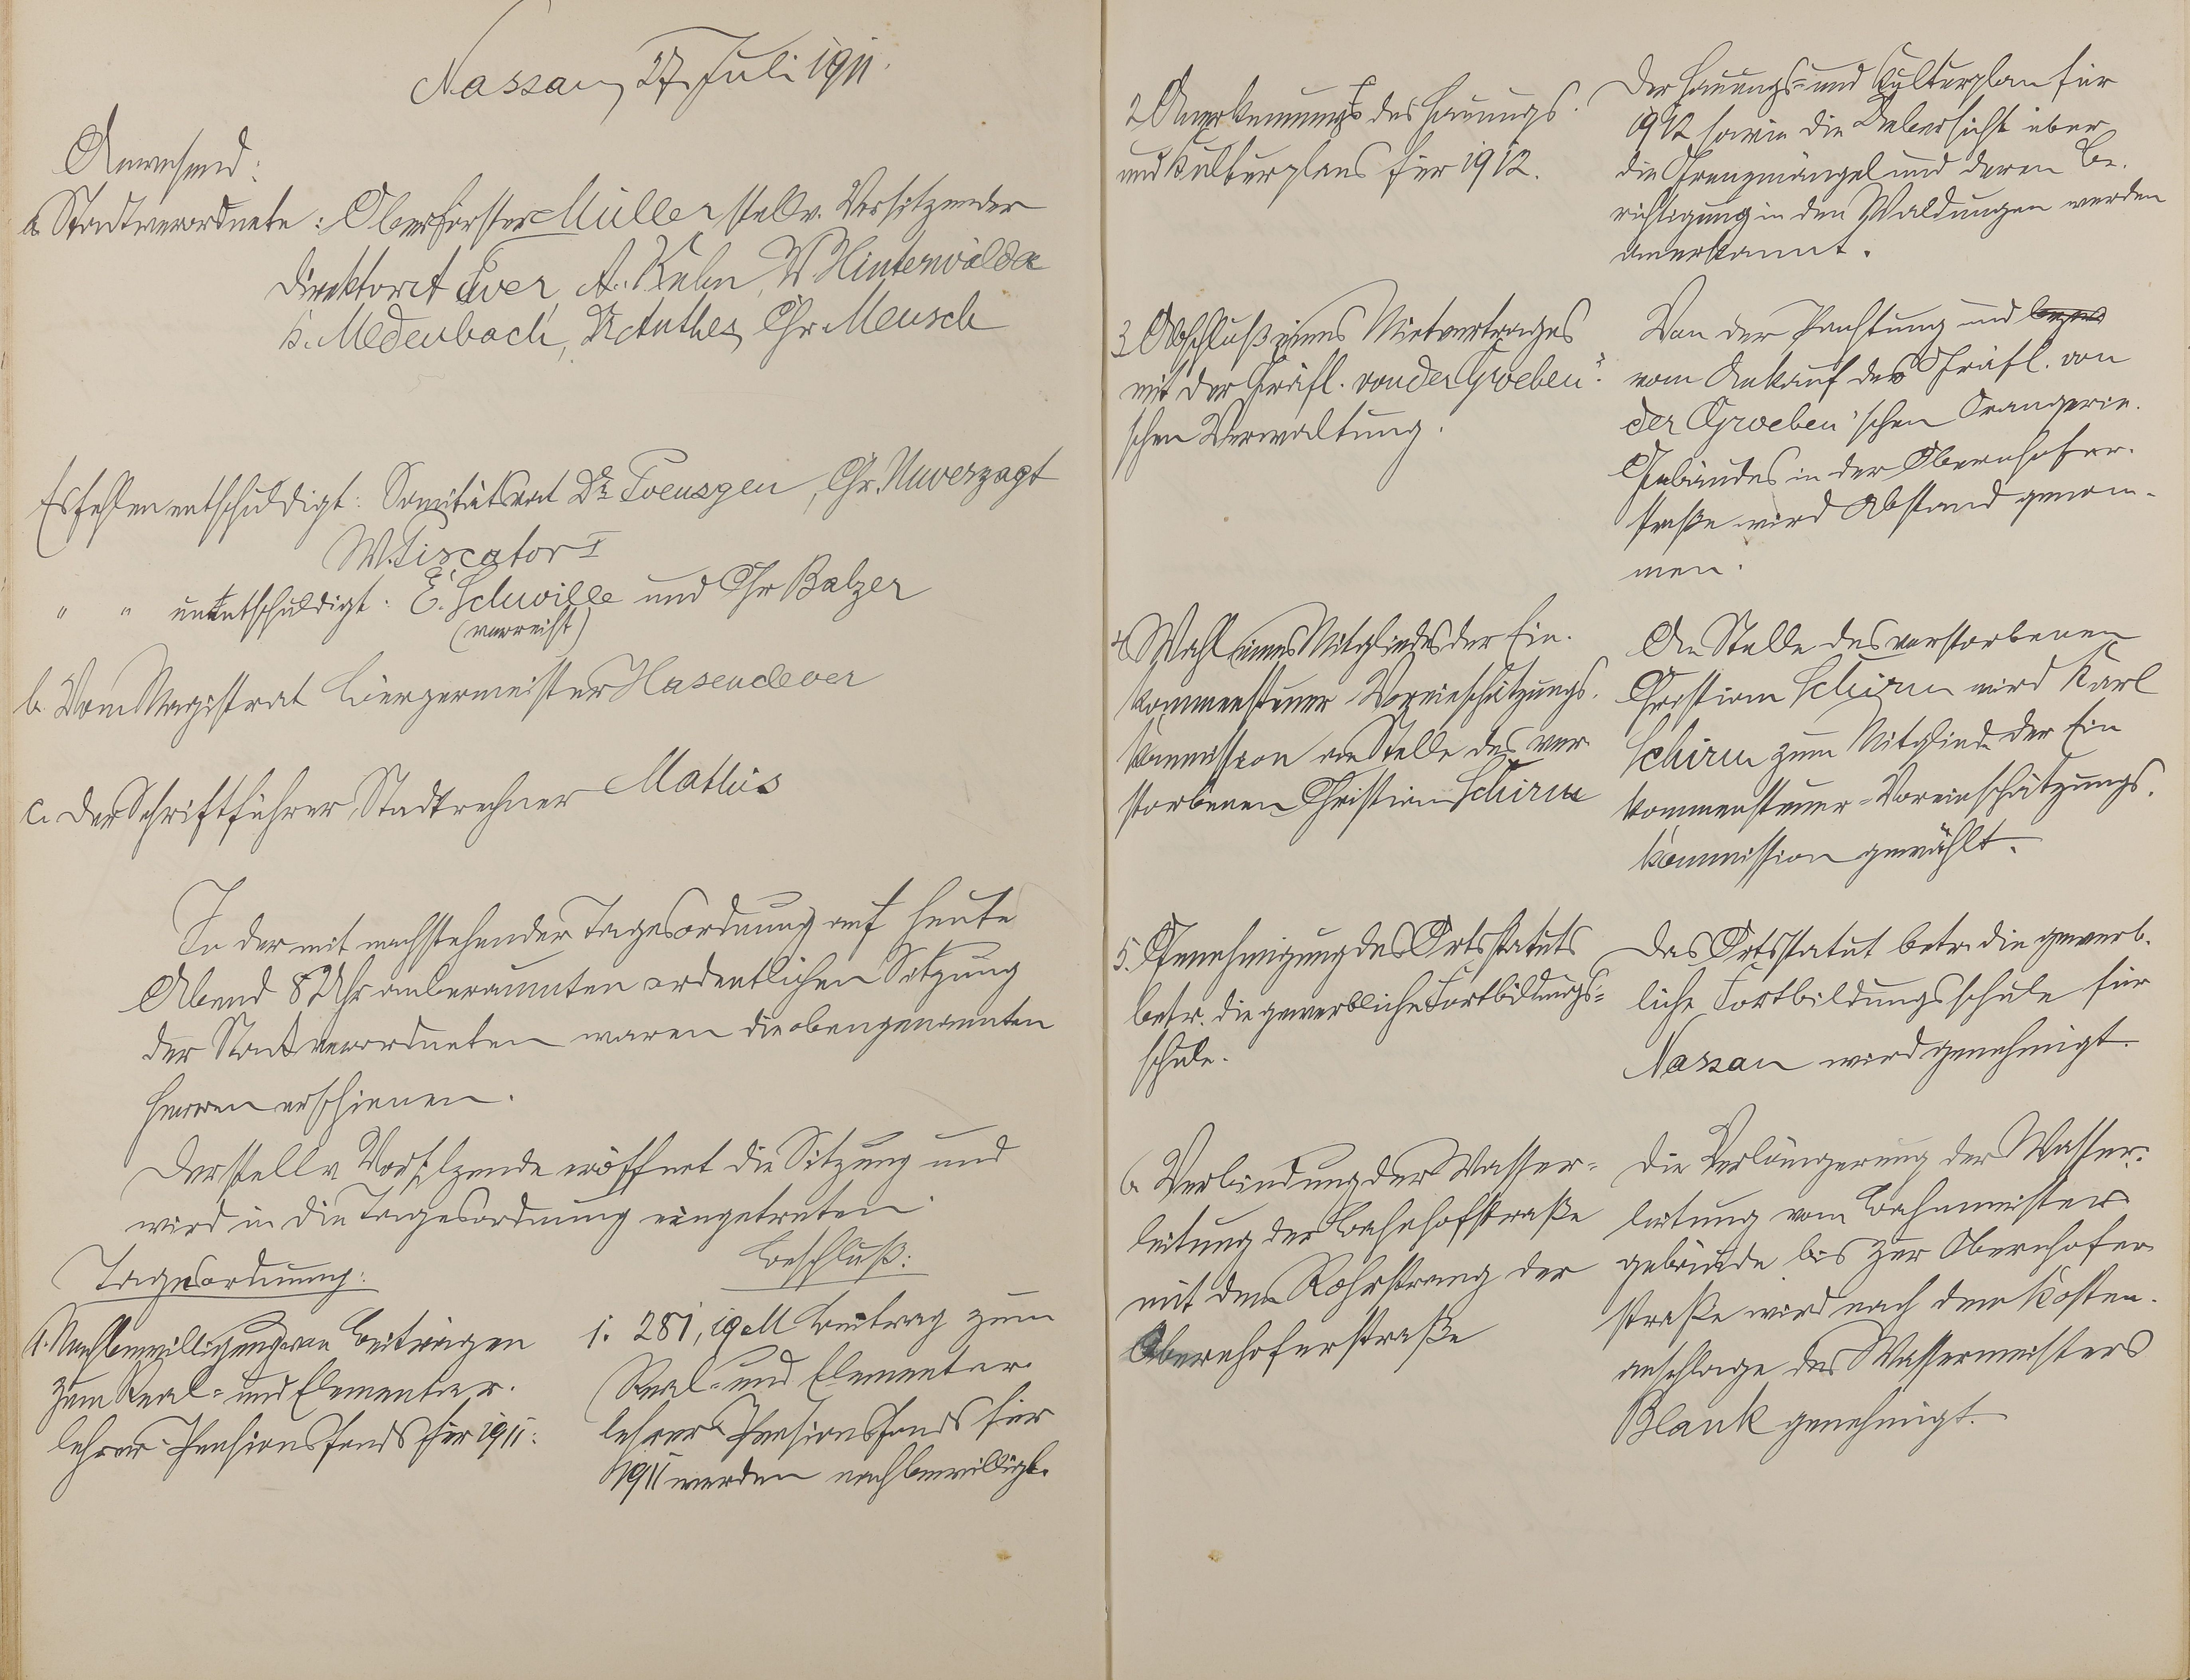 Nassau, 27. Juli 1911.
Anwesend:
a. Stadtverordnete: Oberförster Müller stellv. Vorsitzender
Direktor A. Kuhn, W. Hinterwälder
K. Medenbach, Anthes, Chr. Meusch
Es fehlen entschuldigt: Sanitätsrat Dr. Poensgen, Chr. Unverzagt
W. Piscator I
" " unentschuldigt: E. Schwille und Chr Balzer
(verreist)
b. Vom Magistrat Bürgermeister Hasenclever
c. Der Schriftführer, Stadtrechner Mathis
In der mit nachstehender Tagesordnung auf heute
Abend 8 Uhr anberaumten ordentlichen Sitzung
der Stadtverordneten waren die obengenannten
Herren erschienen.
Der stellv. Vorsitzende eröffnet die Sitzung und
wird in die Tagesordnung eingetreten
Tagesordnung:
1. Nachbewilligung von Beiträgen
zum Real- und Elementar-
lehrer-Pensionsfonds für 1911.
Beschluß:
1. 281,19 M Beitrag zum
Real- und Elementar-
lehrer-Pensionsfonds für
1911 werden nachbewilligt.
2 Anerkennung des Hauungs-
und Kulturplans für 1912.
Der Hauungs- und Kulturplan für
1912 sowie die Uebersicht über
die Grenzmängel und deren Be-
richtigung in den Waldungen werden
anerkannt.
3 Abschluß eines Mietvertrages
mit der Gräfl. von der Groeben'-
schen Verwaltung.
Von der Pachtung und
vom Ankauf des Gräfl. von
der Groeben'schen Orangerie-
Gebäudes in der Obernhofer-
straße wird Abstand genom-
men.
4 Wahl eines Mitgliedes der Ein-
kommensteuer-Voreinschätzungs-
kommission an Stelle des ver-
storbenen Christian Schirm
An Stelle des verstorbenen
Christian Schirm wird Karl
Schirm zum Mitgliede der Ein
kommensteuer-Voreinschätzungs-
kommission gewählt.
5. Genehmigung des Ortsstatuts
betr. die gewerbliche Fortbildungs-
schule.
Das Ortsstatut betr. die gewerb-
liche Fortbildungsschule für
Nassau wird genehmigt.
6 Verbindung der Wasser-
leitung der Bahnhofstraße
mit dem Rohrstrang der
Obernhoferstraße
Die Verlängerung der Wasser-
leitung vom Bahnmeister
gebäude bis zur Obernhofer
straße wird nach dem Kosten-
anschlage des Wassermeisters
Blank genehmigt.